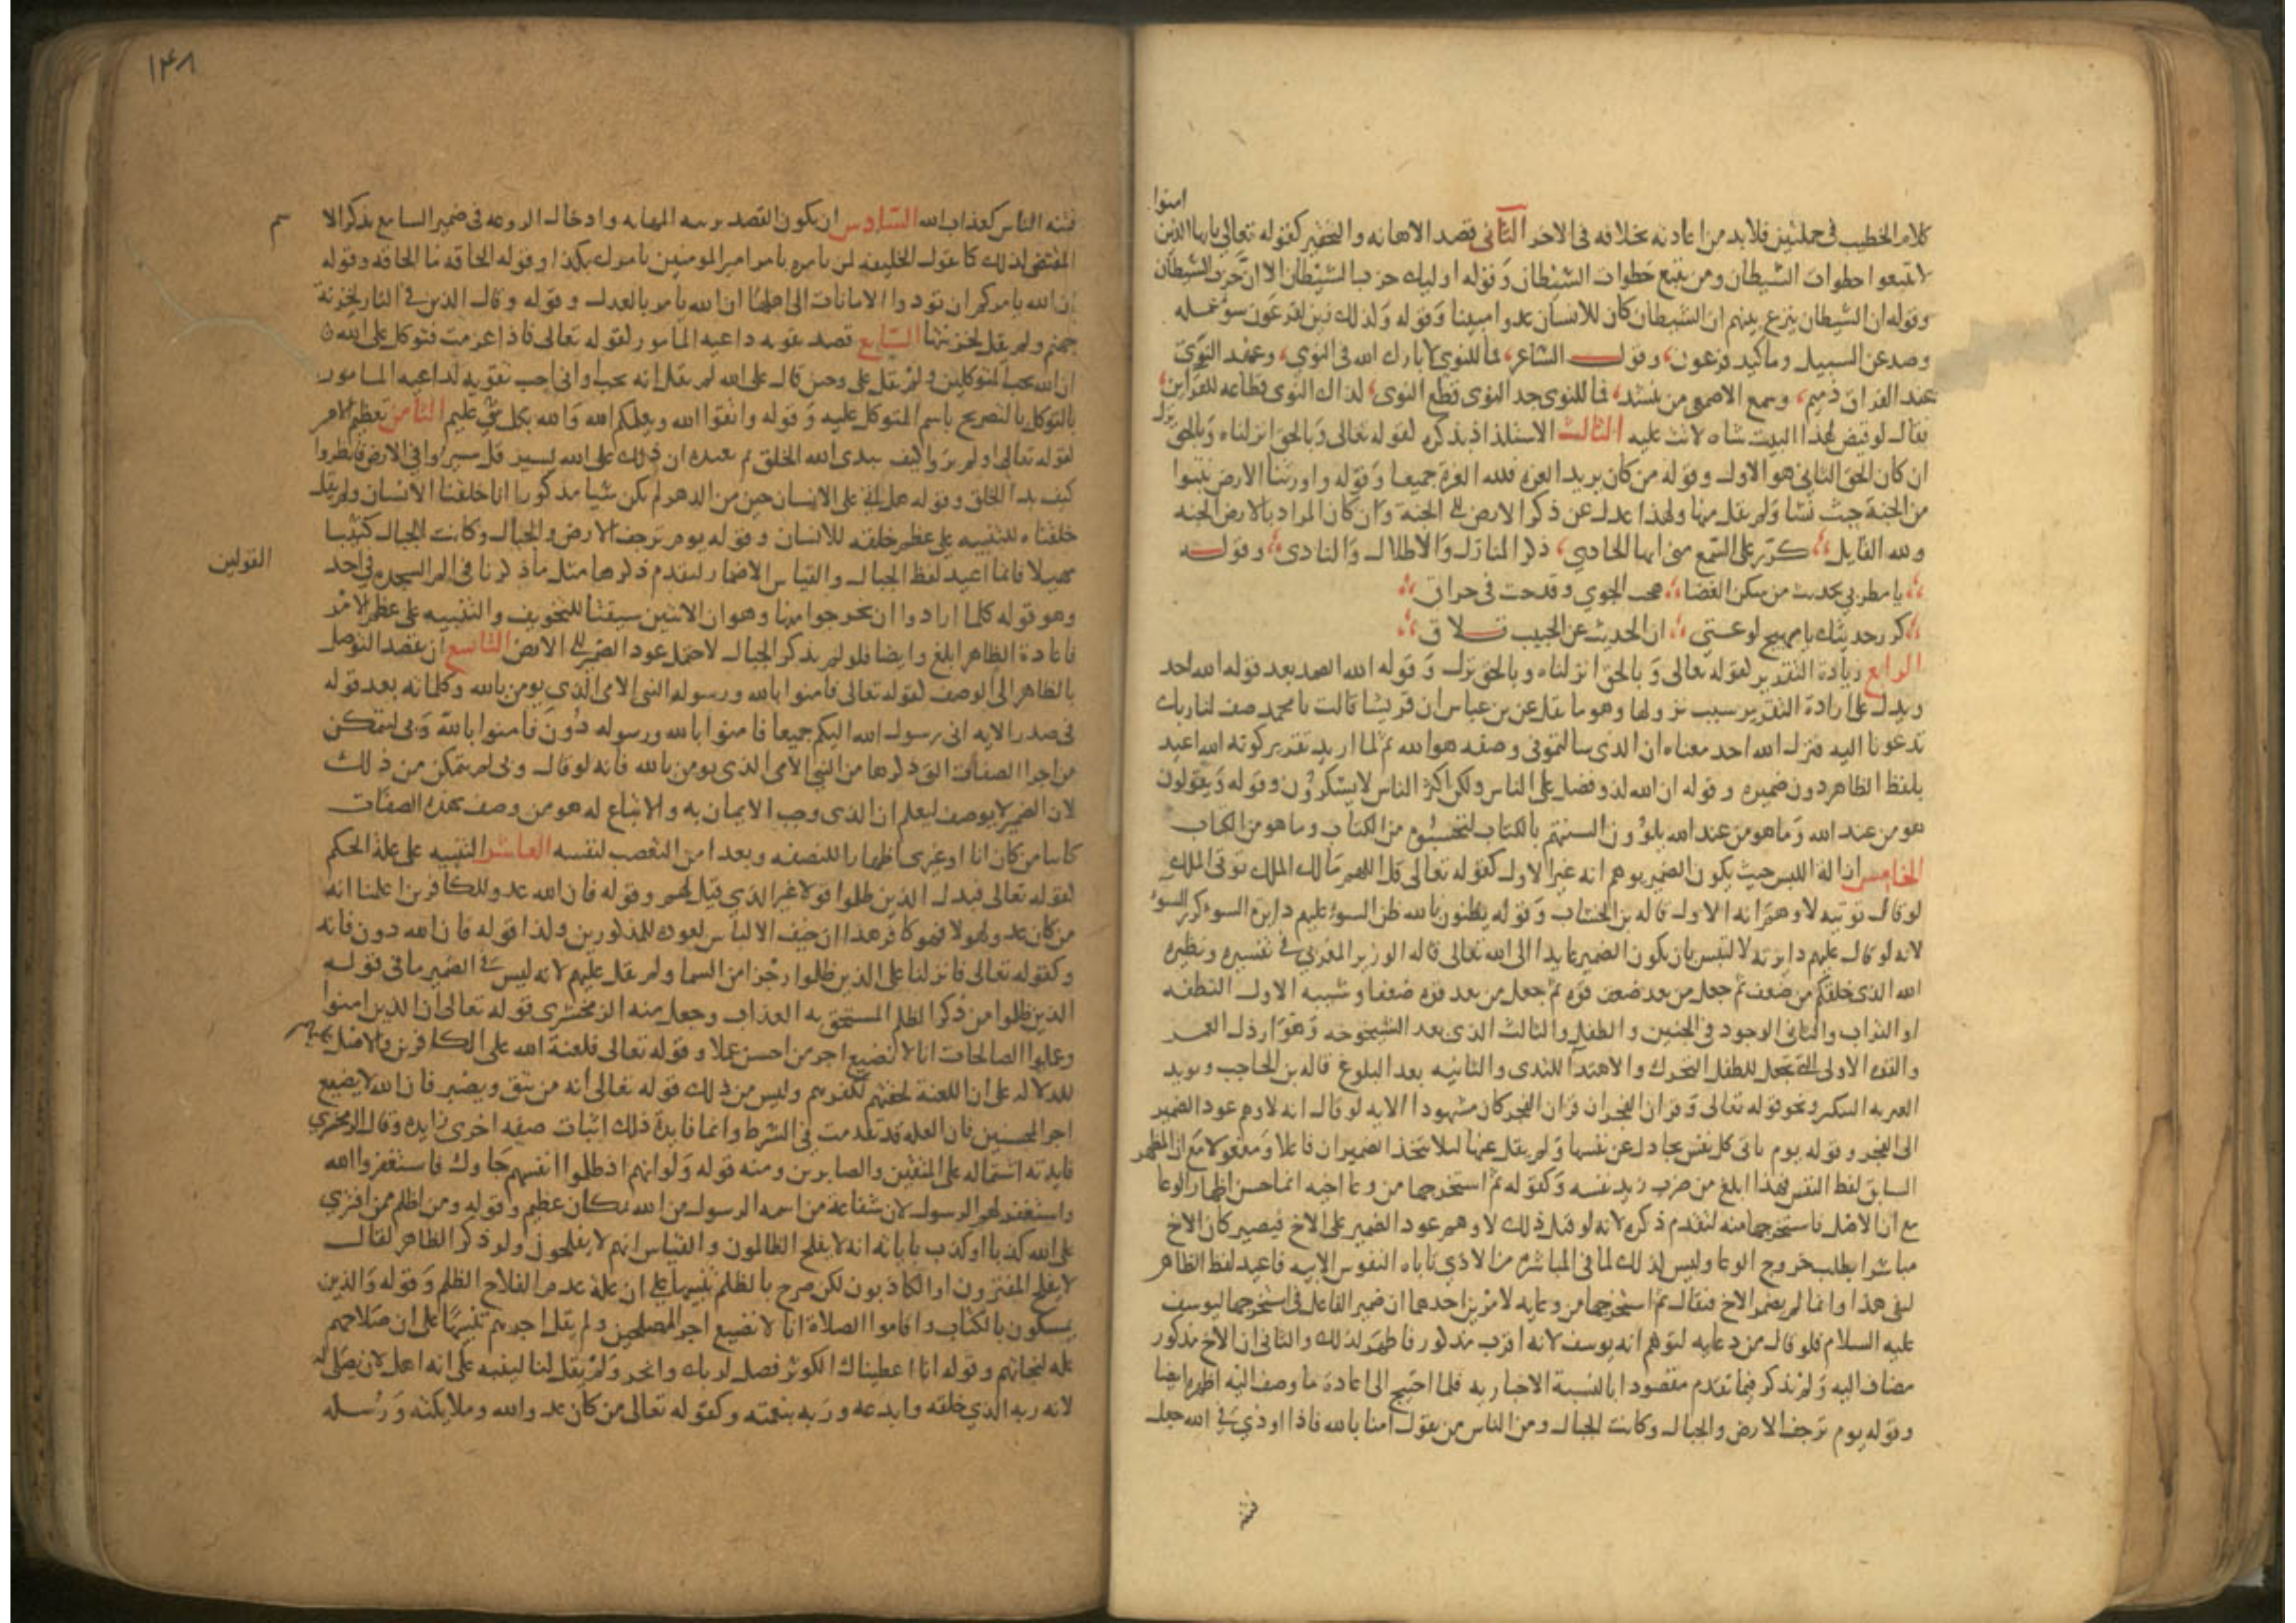 امنوا
كلام الخطيب في جملتين فلا بد من اعادته بخلافه في الاخر الثاني قصد الاهانه والتحقير كقوله تعالى يا ايها الذين
لا تتبعوا خطوات الشيطان ومن يتبع خطوات الشيطان وقوله اوليك حزب الشيطان الا ان حزب الشيطان
وقوله ان الشيطان ينزغ بينهم ان الشيطان كان للانسان عدوا مبينا وقوله وكذلك زين لفرعون سو عمله
وصد عن السبيل وما كيد فرعون وقول الشاعر فما للنوى لا بارك الله في النوى وعهد النوى
عند الفراق ذميم وسمع الاصمعي من ينشد فما للنوى جد النوى قطع النوى كذاك النوى قطاعه للقراين
فقال لو قيض لهذا البيت شاه لاتت عليه الثالث الاستلذاذ بذكره كقوله تعالى وبالحق انزلناه وبالحق نزل
ان كان الحق الثاني هو الاول وقوله من كان يريد العزه فلله العزه جميعا وقوله واورثنا الارض نتبوا
من الجنة حيث نشا ولم يقل منها ولهذا عدل عن ذكر الارض الى الجنة وان كان المراد بالارض الجنه
ولله القايل كرر على السمع مني ايها الحادي ذكر المنازل والاطلال والنادي وقوله
يا مطربي بحديث من سكن الغضا هجت الجوى وقدحت في حراق
كرر حديثك يا مهيج لوعتي ان الحديث عن الحبيب تلاق
الرابع زيادة التقدير كقوله تعالى وبالحق انزلناه وبالحق نزل وقوله الله الصمد بعد قوله الله احد
ويدل على ارادة التقدير سبب نزولها وهو ما نقل عن بن عباس ان قريشا قالت يا محمد صف لنا ربك
تدعونا اليه فنزل الله احد معناه ان الذي سالتموني وصفه هو الله ثم لما اريد تقدير كونه الله اعيد
بلفظ الظاهر دون ضميره وقوله ان الله لذو فضل على الناس ولكن اكثر الناس لا يشكرون وقوله ويقولون
هو من عند الله وما هو من عند الله يلوون السنتهم بالكتاب لتحسبوه من الكتاب وما هو من الكتاب
الخامس ازالة اللبس حيث يكون الضمير يوهم انه غير الاول كقوله تعالى قل اللهم مالك الملك توتي الملك
لو قال توتيه لاوهم انه الاول قاله بن الخشاب وقوله يظنون بالله ظن السوء عليهم دايرة السوء كرر السوء
لانه لو قال عليهم دايرته لالتبس بان يكون الضمير عايدا الى الله تعالى قاله الوزير المغربي في تفسيره ونظيره
الله الذي خلقكم من ضعف ثم جعل من بعد ضعف قوه ثم جعل من بعد قوه ضعفا وشيبه الاول النطفه
او التراب والثاني الوجود في الجنين والطفل والثالث الذي بعد الشيخوخه وهو ارذل العمر
والقوه الاولى التي تجعل للطفل التحرك والاهتدا للثدي والثانيه بعد البلوغ قاله بن الحاجب ويويد
الغيريه التنكير ونحو قوله تعالى وقران الفجر ان قران الفجر كان مشهودا الايه لو قال انه لاوهم عود الضمير
الى الفجر وقوله يوم تاتي كل نفس تجادل عن نفسها ولم يقل عنها ليلا يتخذ الضميران فاعلا ومفعولا مع ان المظهر
السابق لفظ النفس فهذا ابلغ من ضرب زيد نفسه وكقوله ثم استخرجها من وعا اخيه انما حسن اظهار الوعا
مع ان الاصل فاستخرجها منه لتقدم ذكره لانه لو قيل ذلك لاوهم عود الضمير على الاخ فيصير كان الاخ
مباشرا بطلب خروج الوعا وليس كذلك لما في المباشره من الاذي تاباه النفوس الابيه فاعيد لفظ الظاهر
لنفي هذا وانما لم يضمر الاخ فيقال ثم استخرجها من وعايه لامرين احدهما ان ضمير الفاعل في استخرجها ليوسف
عليه السلام فلو قال من وعايه لتوهم انه يوسف لانه اقرب مذكور فاظهر لذلك والثاني ان الاخ مذكور
مضاف اليه ولم يذكر فيما تقدم مقصودا بالنسبة الاخباريه فلما احتيج الى اعادة ما وصف اليه اظهره ايضا
وقوله يوم ترجف الارض والجبال وكانت الجبال ومن الناس من يقول امنا بالله فاذا اوذي في الله جعل
فتنه
١٤٨
فتنه الناس كعذاب الله السادس ان يكون القصد تربيه المهابه وادخال الروعه في ضمير السامع بذكر الا سم
المقتضي لذلك كما يقول الخليفه لمن يامره بامر امير المومنين يامرك بكذا وقوله الحاقه ما الحاقه وقوله
ان الله يامركم ان تودوا الامانات الى اهلها ان الله يامر بالعدل وقوله وقال الذين في النار لخزنة
جهنم ولم يقل لخزنتها السابع قصد تقويه داعيه المامور كقوله تعالى فاذا عزمت فتوكل على الله
ان الله يحب المتوكلين ولم يقل علي وحين قال على الله لم يقل انه يحب او اني احب تقويه لداعيه المامور
بالتوكل بالتصريح باسم المتوكل عليه وقوله واتقوا الله ويعلمكم الله والله بكل شي عليم الثامن تعظيم الامر
كقوله تعالى اولم يروا كيف يبدي الله الخلق ثم يعيده ان ذلك على الله يسير قل سيروا في الارض فانظروا
كيف بدا الخلق وقوله هل اتى على الانسان حين من الدهر لم يكن شيا مذكورا انا خلقنا الانسان ولم يقل
خلقناه للتنبيه على عظم خلقه للانسان وقوله يوم ترجف الارض والجبال وكانت الجبال كثيبا
مهيلا فانما اعيد لفظ الجبال والقياس الاضمار لتقدم ذكرها مثل ما ذكرنا في الم السجده في احد
القولين
وهو قوله كلما ارادوا ان يخرجوا منها وهو ان الايتين سيقتا للتخويف والتنبيه على عظم الامر
فاعادة الظاهر ابلغ وايضا فلو لم يذكر الجبال لاحتمل عود الضمير الى الارض التاسع ان يقصد التوصل
بالظاهر الى الوصف كقوله تعالى فامنوا بالله ورسوله النبي الامي الذي يومن بالله وكلماته بعد قوله
في صدر الايه اني رسول الله اليكم جميعا فامنوا بالله ورسوله دون فامنوا بالله وبي ليتمكن
من اجرا الصفات التي ذكرها من النبي الامي الذي يومن بالله فانه لو قال وبي لم يتمكن من ذلك
لان الضمير لا يوصف ليعلم ان الذي وجب الايمان به والاتباع له هو من وصف بهذه الصفات
كاينا من كان انا او غيري اظهارا للنصفه وبعدا من التعصب لنفسه العاشر التنبيه على علة الحكم
كقوله تعالى فبدل الذين ظلموا قولا غير الذي قيل لهم وقوله فان الله عدو للكافرين اعلمنا انه
من كان عدوا لهولا فهو كافر هذا ان خيف الالباس لعوده للمذكورين ولذا قوله فان الله دون فانه
وكقوله تعالى فانزلنا على الذين ظلموا رجزا من السما ولم يقل عليهم لانه ليس في الضمير ما في قوله
الذين ظلموا من ذكر الظلم المستحق به العذاب وجعل منه الزمخشري قوله تعالى ان الذين امنوا
وعملوا الصالحات انا لا نضيع اجر من احسن عملا وقوله تعالى فلعنة الله على الكافرين والاصل عليهم
للدلاله على ان اللعنة لحقتهم لكفرهم وليس من ذلك قوله تعالى انه من يتق ويصبر فان الله لا يضيع
اجر المحسنين فان العله قد تقدمت في الشرط وانما فايدة ذلك اثبات صفه اخرى زايده وقال الزمخشري
فايدته اشتماله على المتقين والصابرين ومنه قوله ولو انهم اذ ظلموا انفسهم جاوك فاستغفروا الله
واستغفر لهم الرسول لان شفاعة من اسمه الرسول من الله بمكان عظيم وقوله ومن اظلم ممن افترى
على الله كذبا او كذب باياته انه لا يفلح الظالمون والقياس انهم لا يفلحون ولو ذكر الظاهر لقال
لا يفلح المفترون او الكاذبون لكن صرح بالظلم تنبيها على ان علة عدم الفلاح الظلم وقوله والذين
يمسكون بالكتاب واقاموا الصلاة انا لا نضيع اجر المصلحين ولم يقل اجرهم تنبيها على ان صلاحهم
علة لنجاتهم وقوله انا اعطيناك الكوثر فصل لربك وانحر ولم يقل لنا لينبه على انه اهل لان يصلى له
لانه ربه الذي خلقه وابدعه وربه بنعمته وكقوله تعالى من كان عدوا لله وملايكته ورسله